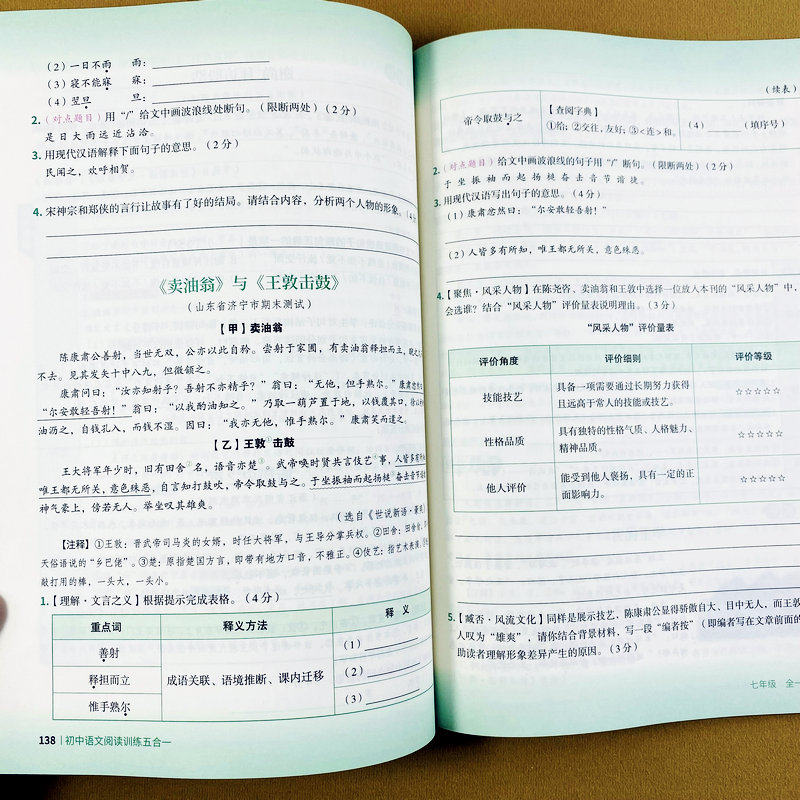 （2）一日不雨 雨：
（3）寝不能寐 寐：
（4）翌旦 旦：
2.（对点题目）用“/”给文中画波浪线处断句。（限断两处）（2分）
是日大雨远近沾洽。
3.用现代汉语解释下面句子的意思。（2分）
民闻之，欢呼相贺。
4.宋神宗和郑侠的言行让故事有了好的结局。请结合内容，分析两个人物的形象。（4分
《卖油翁》与《王敦击鼓》
（山东省济宁市期末测试）
【甲】卖油翁
陈康肃公善射，当世无双，公亦以此自矜。尝射于家圃，有卖油翁释担而立，睨之
不去。见其发矢十中八九，但微颔之。
康肃问曰：“汝亦知射乎？吾射不亦精乎？”翁曰：“无他，但手熟尔。”康肃忿然
“尔安敢轻吾射！”翁曰：“以我酌油知之。”乃取一葫芦置于地，以钱覆其口，徐以
油沥之，自钱孔入，而钱不湿。因曰：“我亦无他，惟手熟尔。”康肃笑而遣之。
【乙】王敦①击鼓
王大将军年少时，旧有田舍②名，语音亦楚③。武帝唤时贤共言伎艺④事，人皆多有所
唯王都无所关，意色殊恶，自言知打鼓吹，帝令取鼓与之。于坐振袖而起扬槌⑤奋击音节谐
神气豪上，傍若无人。举坐叹其雄爽。
（选自《世说新语·豪爽
【注释】①王敦：晋武帝司马炎的女婿，时任大将军，与王导分掌兵权。②田舍：田舍
天俗语说的“乡巴佬”。③楚：原指楚国方言，即带有地方口音，不雅正。④伎艺：指艺术表演。
敲打用的棒，一头大，一头小。
1.【理解·文言之义】根据提示完成表格。（4分）
重点词 释义方法 释 义
善射 （1）
释担而立 成语关联、语境推断、课内迁移 （2）
惟手熟尔 （3）
138 初中语文阅读训练五合一
（续表）
帝令取鼓与之 【查阅字典】
①给；②交往，友好；③<连>和。 （4） （填序号）
2.（对点题目）给文中画波浪线的句子用“/”断句。（限断两处）（2分）
于坐振袖而起扬槌奋击音节谐捷。
3.用现代汉语写出句子的意思。（4分）
（1）康肃忿然曰：“尔安敢轻吾射！”
（2）人皆多有所知，唯王都无所关，意色殊恶。
4.【聚焦·风采人物】在陈尧咨、卖油翁和王敦中选择一位放入本刊的“风采人物”中，
会选谁？结合“风采人物”评价量表说明理由。（3分）
“风采人物”评价量表
评价角度 评价细则 评价等级
技能技艺 具备一项需要通过长期努力获得
且远高于常人的技能或技艺。 ☆☆☆☆☆
性格品质 具有独特的性格气质、人格魅力、
精神品质。 ☆☆☆☆☆
他人评价 能受到他人褒扬，具有一定的正
面影响力。 ☆☆☆☆☆
5.【臧否·风流文化】同样是展示技艺，陈康肃公显得骄傲自大、目中无人，而王敦
人叹为“雄爽”，请你结合背景材料，写一段“编者按”（即编者写在文章前面的
助读者理解形象差异产生的原因。（3分）
七年级 全一